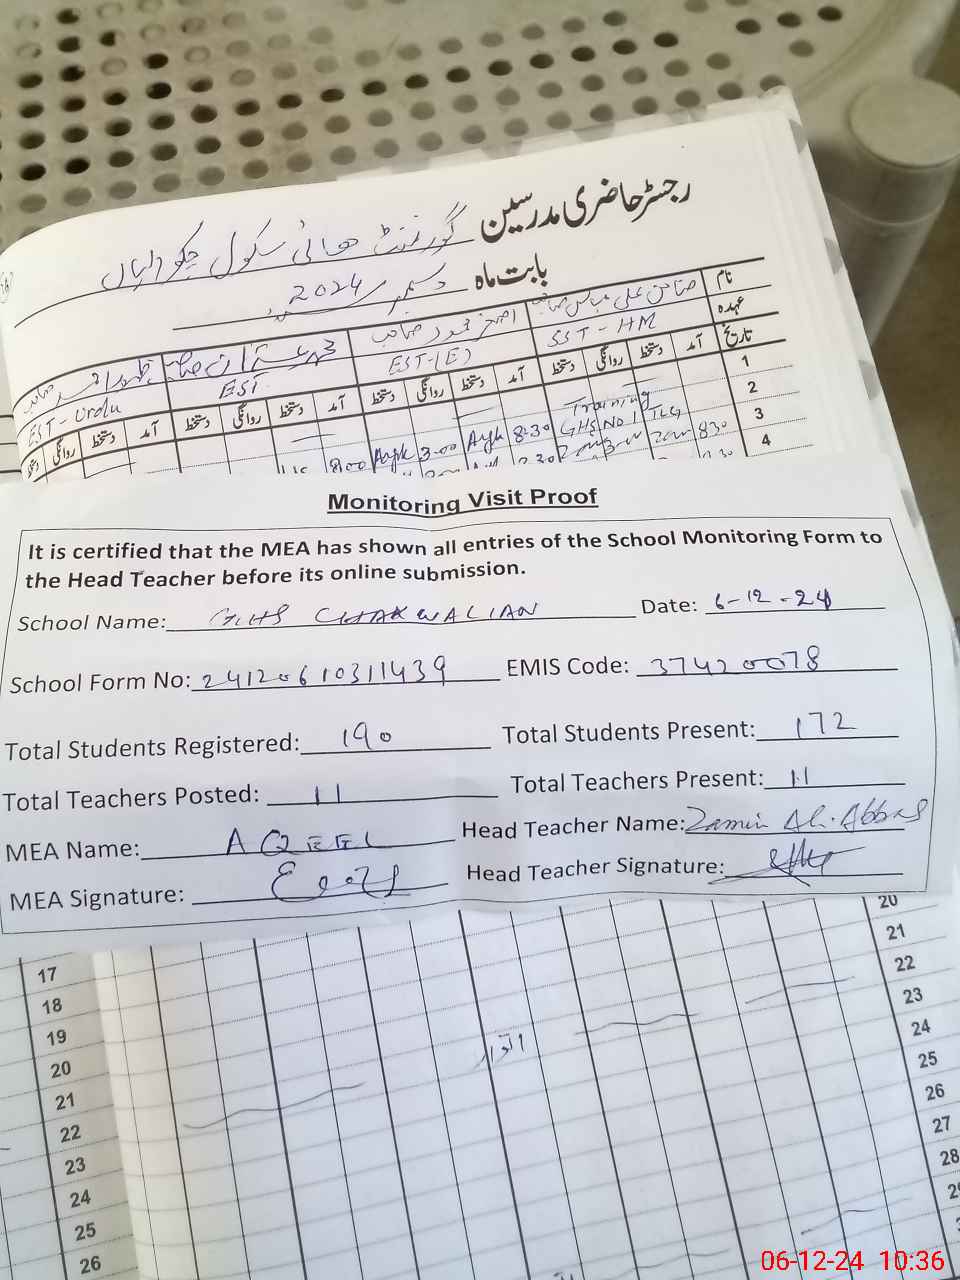 رجسٹر حاضری مدرسین گورنمنٹ ھائی سکول چکوالیاں
بابت ماہ دسمبر 2024
نام
عہدہ SST - HM EST-(E) EST EST-Urdu
تاریخ آمد دستخط روانگی دستخط آمد دستخط روانگی دستخط آمد دستخط روانگی دستخط آمد دستخط روانگی
1
2 Training
3 GHS No 1 TLG 8:30 3:00 8:00
4 8:30
Monitoring Visit Proof
It is certified that the MEA has shown all entries of the School Monitoring Form to
the Head Teacher before its online submission.
School Name: GHS CHAKWALIAN Date: 6-12-24
School Form No: 24120610311439 EMIS Code: 37420078
Total Students Registered: 190 Total Students Present: 172
Total Teachers Posted: 11 Total Teachers Present: 11
MEA Name: AQEEL Head Teacher Name: Zamin Ali Abbas
MEA Signature: Head Teacher Signature:
20
17 21
18 22
19 23
20 24
21 25
22 26
23 27
24 28
25
26
اتوار
06-12-24 10:36